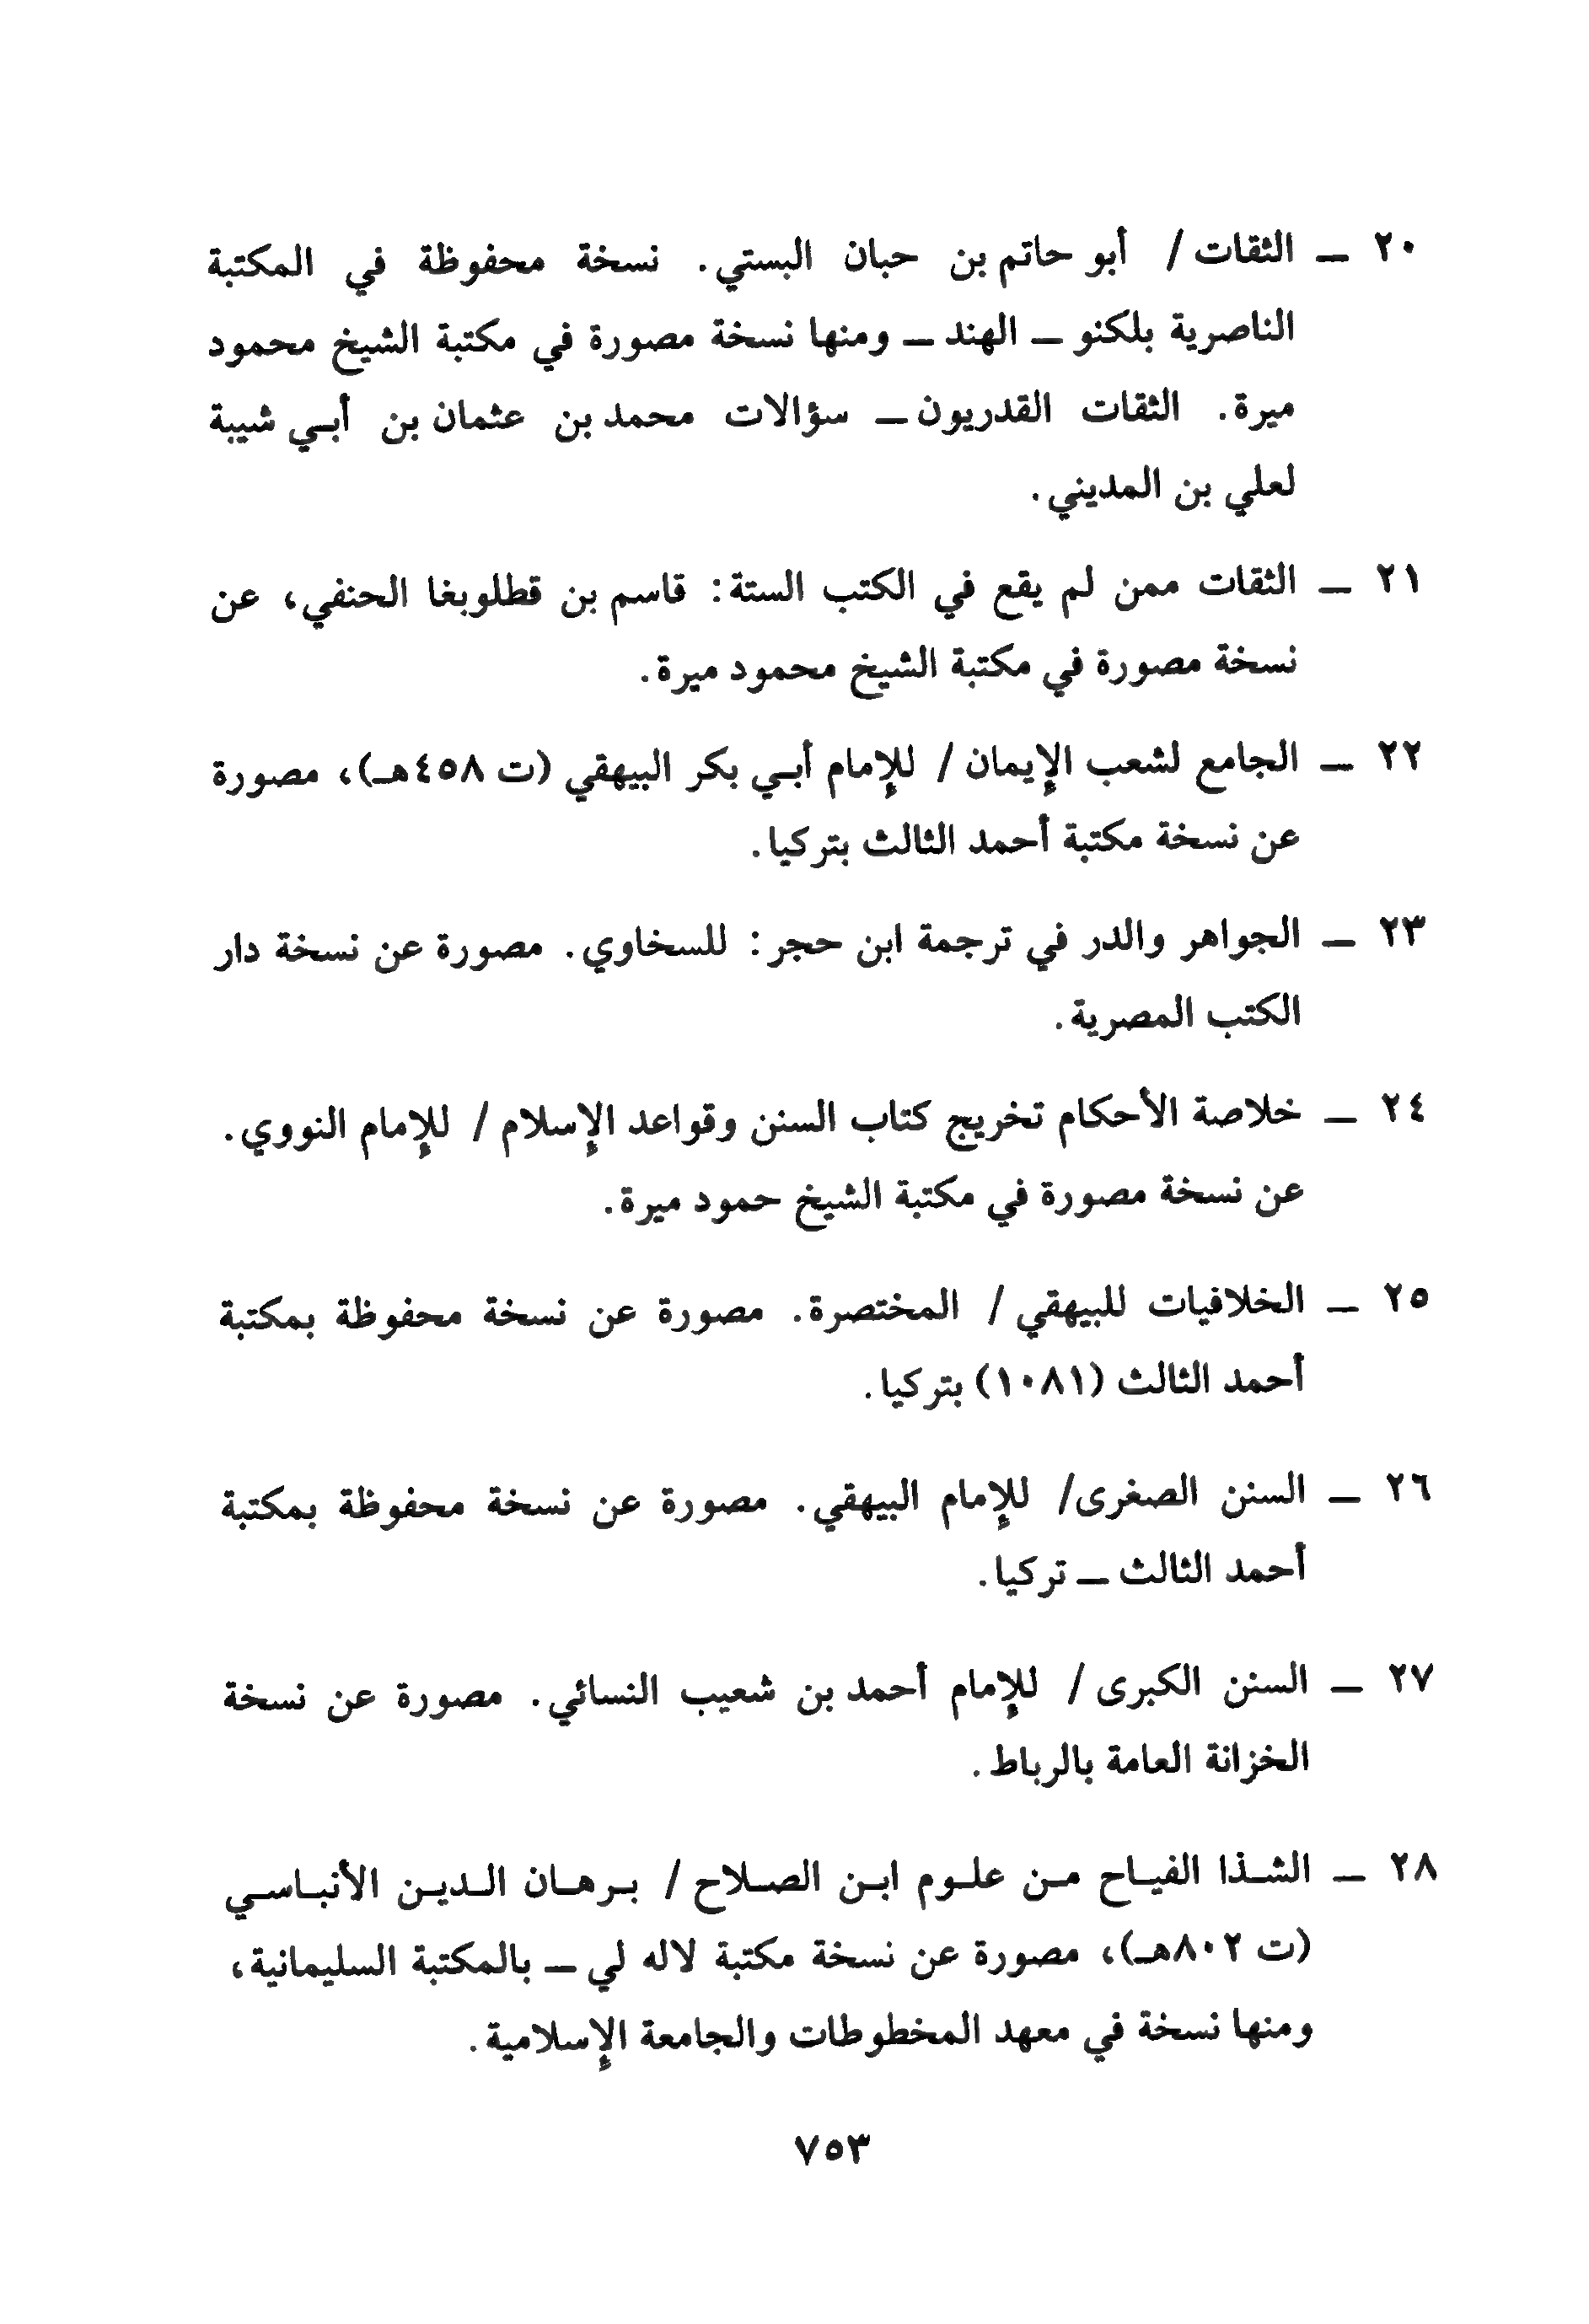 ٢٠ ــ الثقات / أبو حاتم بن حبان البستي. نسخة محفوظة في المكتبة
الناصرية بلكنو ــ الهند ــ ومنها نسخة مصورة في مكتبة الشيخ محمود
ميرة. الثقات القدريون ــ سؤالات محمد بن عثمان بن أبي شيبة
لعلي بن المديني.
٢١ ــ الثقات ممن لم يقع في الكتب الستة: قاسم بن قطلوبغا الحنفي، عن
نسخة مصورة في مكتبة الشيخ محمود ميرة.
٢٢ ــ الجامع لشعب الإيمان / للإمام أبي بكر البيهقي (ت ٤٥٨هـ)، مصورة
عن نسخة مكتبة أحمد الثالث بتركيا.
٢٣ ــ الجواهر والدر في ترجمة ابن حجر: للسخاوي. مصورة عن نسخة دار
الكتب المصرية.
٢٤ ــ خلاصة الأحكام تخريج كتاب السنن وقواعد الإسلام / للإمام النووي.
عن نسخة مصورة في مكتبة الشيخ حمود ميرة.
٢٥ ــ الخلافيات للبيهقي / المختصرة. مصورة عن نسخة محفوظة بمكتبة
أحمد الثالث (١٠٨١) بتركيا.
٢٦ ــ السنن الصغرى/ للإمام البيهقي. مصورة عن نسخة محفوظة بمكتبة
أحمد الثالث ــ تركيا.
٢٧ ــ السنن الكبرى / للإمام أحمد بن شعيب النسائي. مصورة عن نسخة
الخزانة العامة بالرباط.
٢٨ ــ الشـذا الفيـاح مـن علـوم ابـن الصـلاح / بـرهـان الـديـن الأنبـاسـي
(ت ٨٠٢هـ)، مصورة عن نسخة مكتبة لاله لي ــ بالمكتبة السليمانية،
ومنها نسخة في معهد المخطوطات والجامعة الإسلامية.
٧٥٣